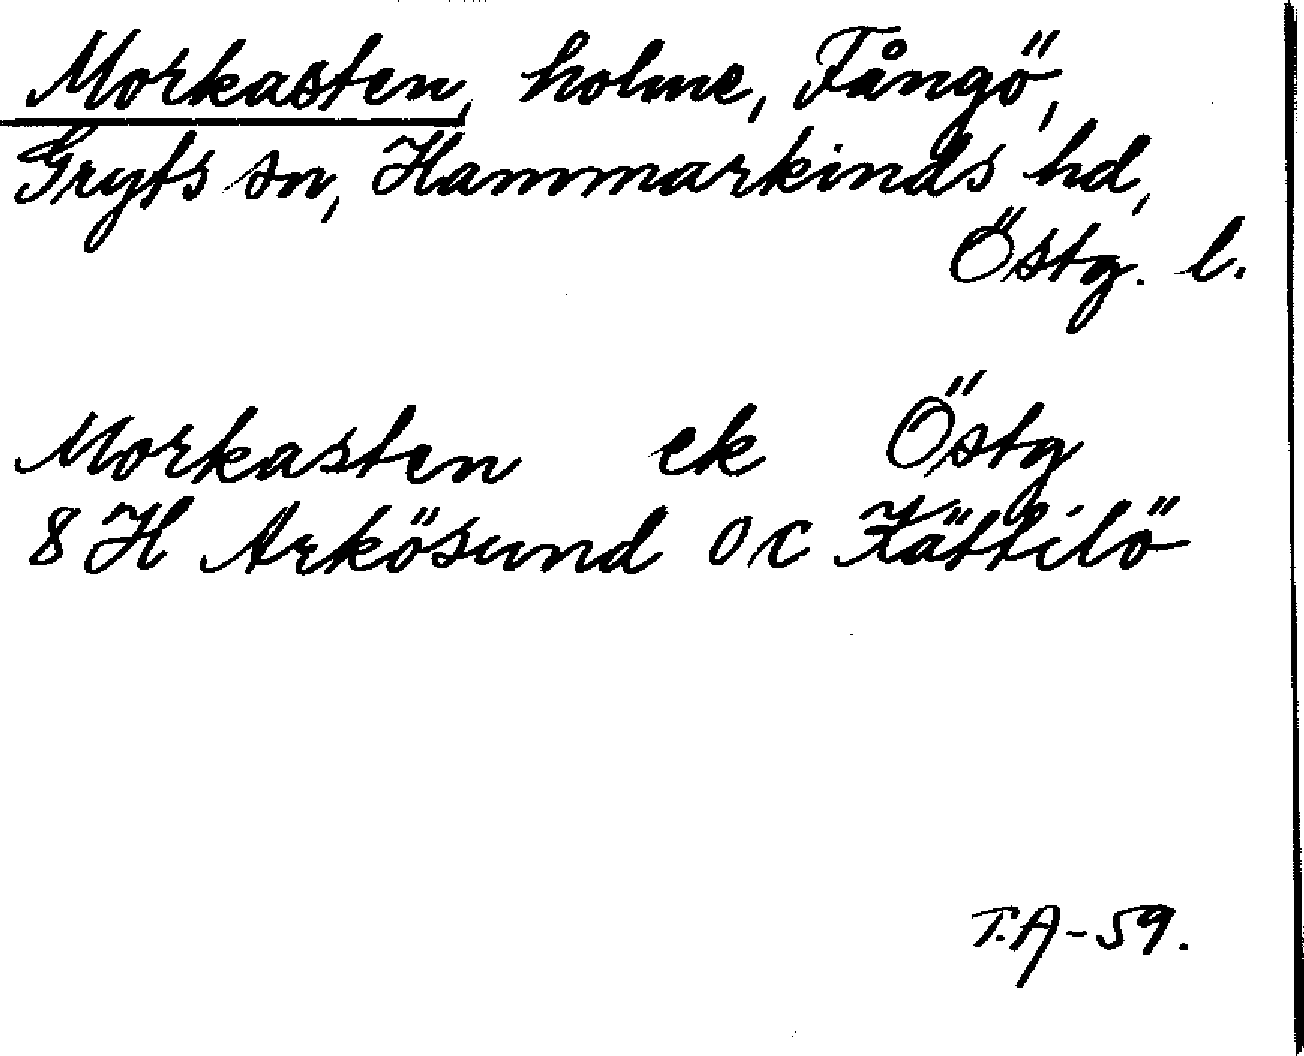 Morkasten, holme, Fångö,
Gryts sn, Hammarkinds hd,
Östg. l.
Morkasten ek Östg
8 H Arkösund OC Kättilö
T.A-59.